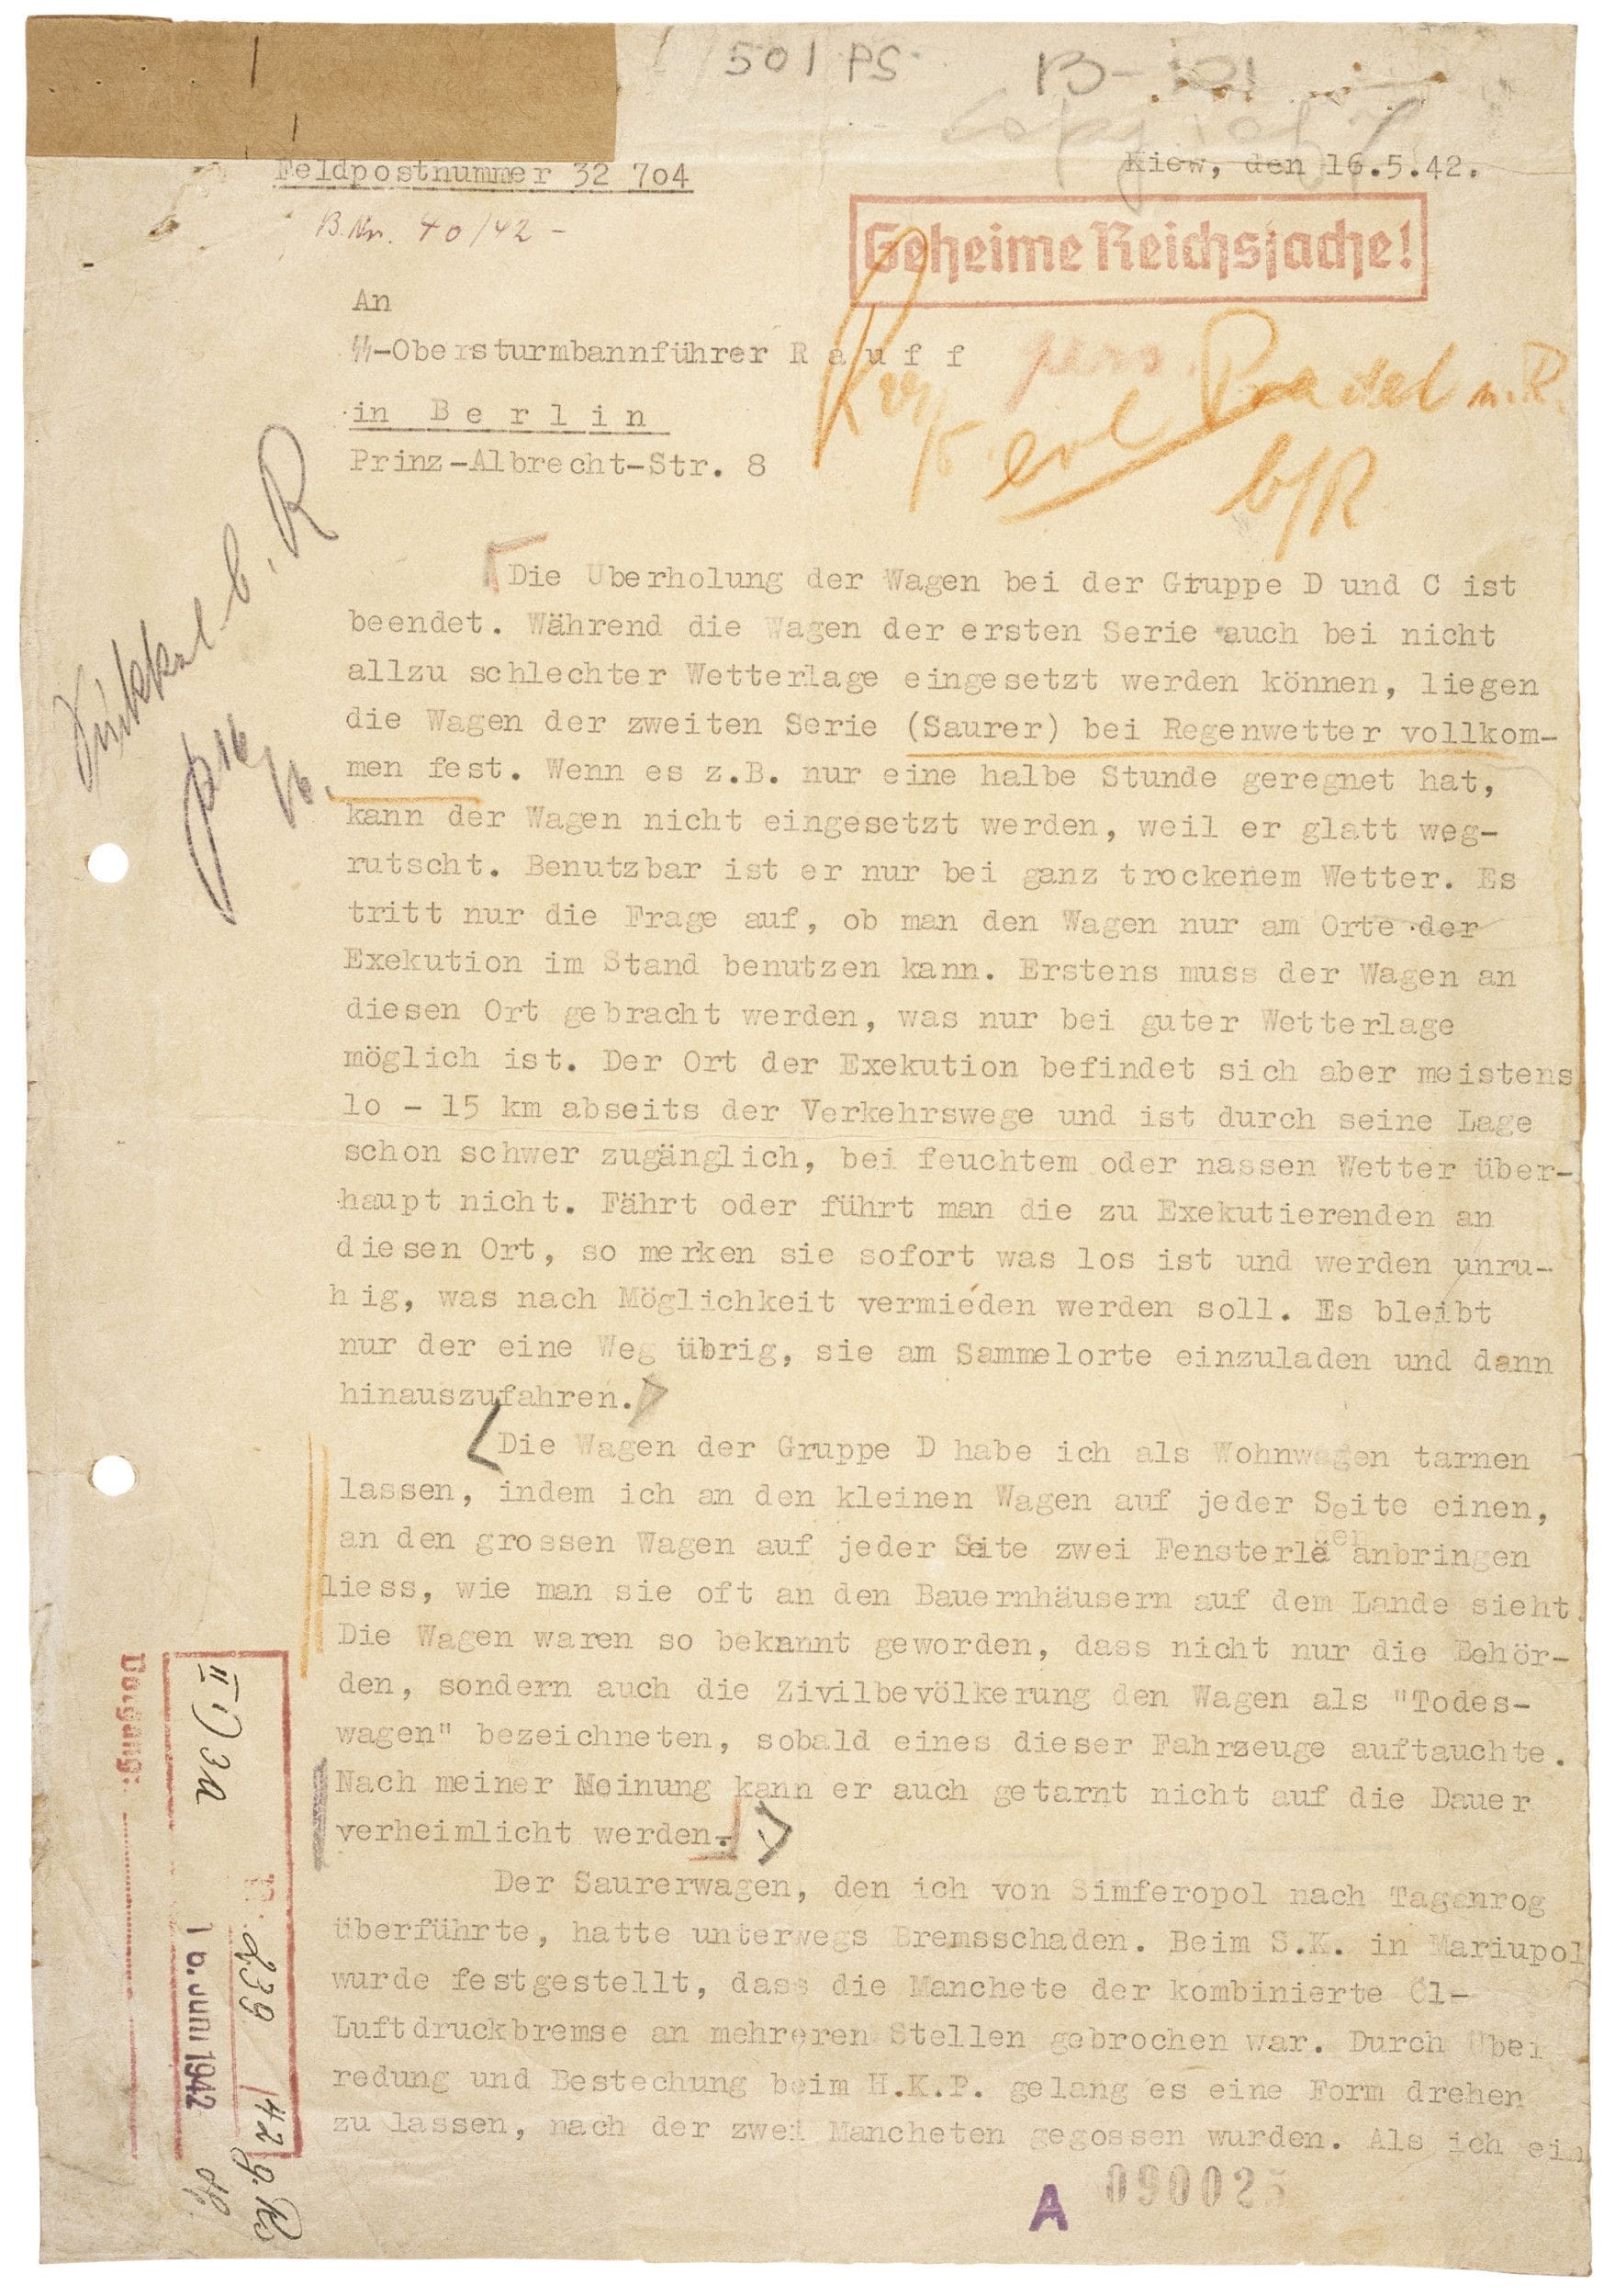 501 PS
Feldpostnummer 32 7o4
Kiew, den 16.5.42.
B.Nr. 40/42 -
Geheime Reichssache!
An
SS-Obersturmbannführer R a u f f
pers. Pradel n.R.
in B e r l i n
erl b/R
Prinz-Albrecht-Str. 8
b.R
Die Überholung der Wagen bei der Gruppe D und C ist
beendet. Während die Wagen der ersten Serie auch bei nicht
allzu schlechter Wetterlage eingesetzt werden können, liegen
die Wagen der zweiten Serie (Saurer) bei Regenwetter vollkom-
men fest. Wenn es z.B. nur eine halbe Stunde geregnet hat,
kann der Wagen nicht eingesetzt werden, weil er glatt weg-
rutscht. Benutzbar ist er nur bei ganz trockenem Wetter. Es
tritt nur die Frage auf, ob man den Wagen nur am Orte der
Exekution im Stand benutzen kann. Erstens muss der Wagen an
diesen Ort gebracht werden, was nur bei guter Wetterlage
möglich ist. Der Ort der Exekution befindet sich aber meistens
1o - 15 km abseits der Verkehrswege und ist durch seine Lage
schon schwer zugänglich, bei feuchtem oder nassen Wetter über-
haupt nicht. Fährt oder führt man die zu Exekutierenden an
diesen Ort, so merken sie sofort was los ist und werden unru-
hig, was nach Möglichkeit vermieden werden soll. Es bleibt
nur der eine Weg übrig, sie am Sammelorte einzuladen und dann
hinauszufahren.
Die Wagen der Gruppe D habe ich als Wohnwagen tarnen
lassen, indem ich an den kleinen Wagen auf jeder Seite einen,
an den grossen Wagen auf jeder Seite zwei Fensterläden anbringen
liess, wie man sie oft an den Bauernhäusern auf dem Lande sieht.
Die Wagen waren so bekannt geworden, dass nicht nur die Behör-
den, sondern auch die Zivilbevölkerung den Wagen als "Todes-
wagen" bezeichneten, sobald eines dieser Fahrzeuge auftauchte.
Nach meiner Meinung kann er auch getarnt nicht auf die Dauer
verheimlicht werden.
Der Saurerwagen, den ich von Simferopol nach Taganrog
überführte, hatte unterwegs Bremsschaden. Beim S.K. in Mariupol
wurde festgestellt, dass die Manchete der kombinierte Öl-
Luftdruckbremse an mehreren Stellen gebrochen war. Durch Über
redung und Bestechung beim H.K.P. gelang es eine Form drehen
zu lassen, nach der zwei Mancheten gegossen wurden. Als ich ein
II D 3a
239 /42 g.Rs
16. Juni 1942
A 090025